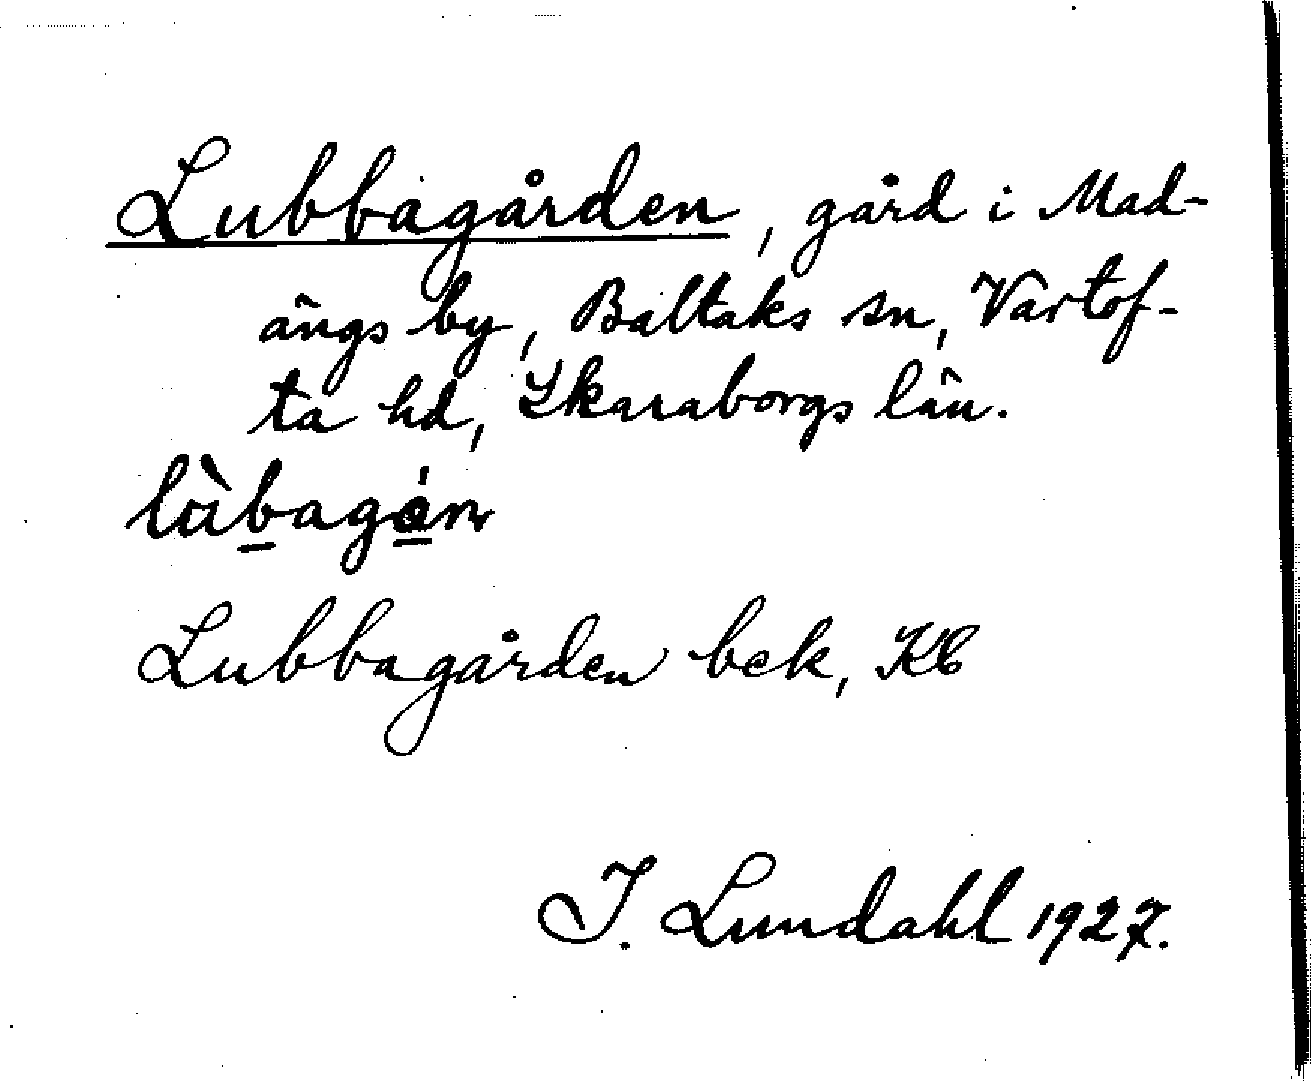 Lubbagården, gård i Mad-
ängs by, Baltaks sn, Vartof-
ta hd, Skaraborgs län.
Lubbagården bek, Kb
I. Lundahl 1927.